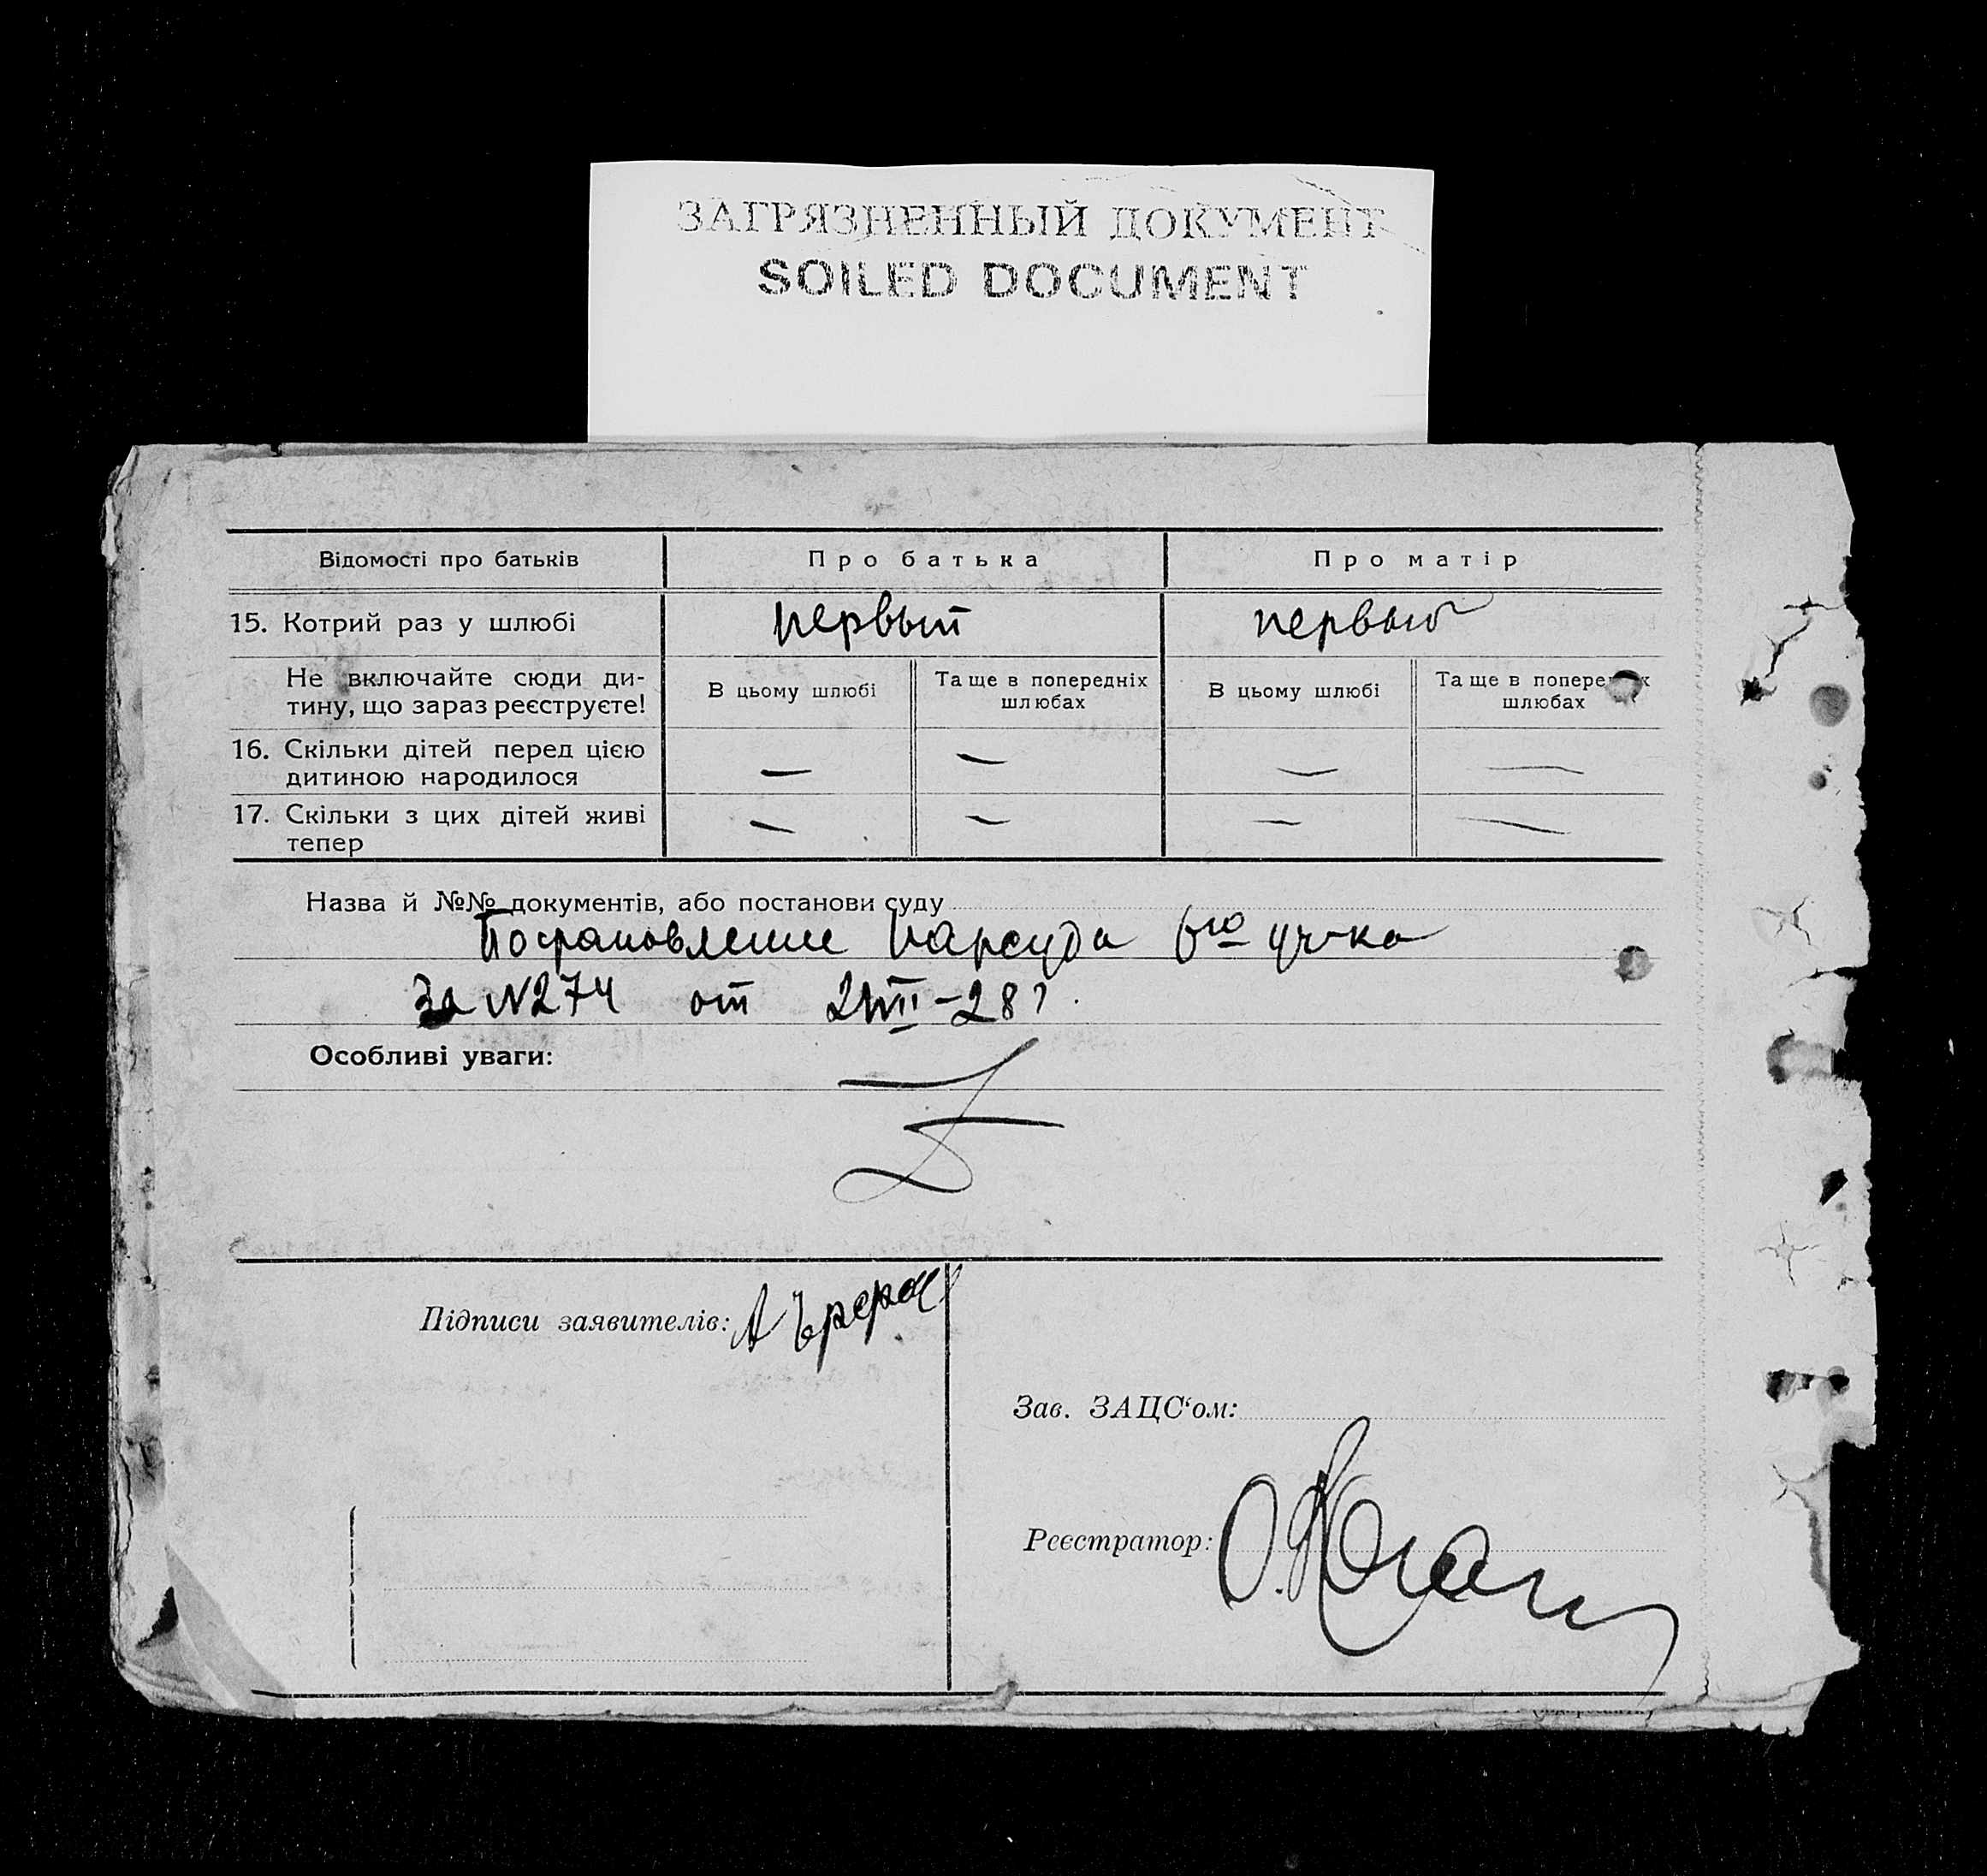 ЗАГРЯЗНЕННЫЙ ДОКУМЕНТ
SOILED DOCUMENT
Відомості про батьків
Про батька
Про матір
15. Котрий раз у шлюбі
первый
первый
Не включайте сюди ди-
тину, що зараз реєструєте!
В цьому шлюбі
Та ще в попередніх
шлюбах
В цьому шлюбі
Та ще в попередніх
шлюбах
16. Скільки дітей перед цією
дитиною народилося
— — — —
17. Скільки з цих дітей живі
тепер
— — — —
Назва й №№ документів, або постанови суду
Постановление Нарсуда 6го уч-ка
За N274 от
Особливі уваги:
Підписи заявителів:
Зав. ЗАЦС‘ом:
Реєстратор: О. Коган